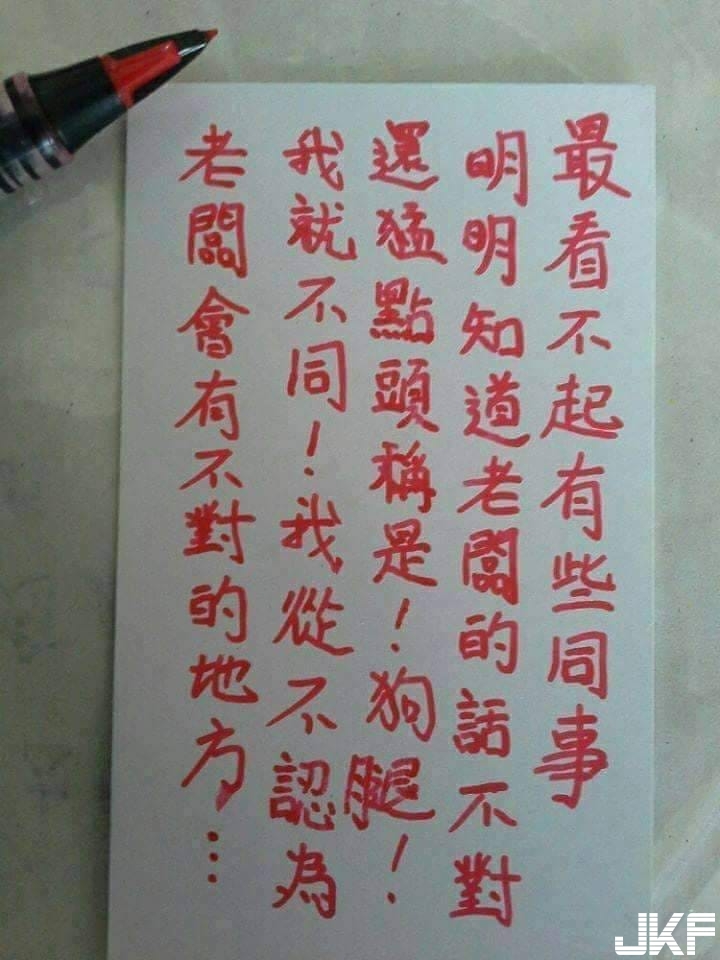 最看不起有些同事
明明知道老闆的話不對
還猛點頭稱是！狗腿！
我就不同！我從不認為
老闆會有不對的地方…
JKF